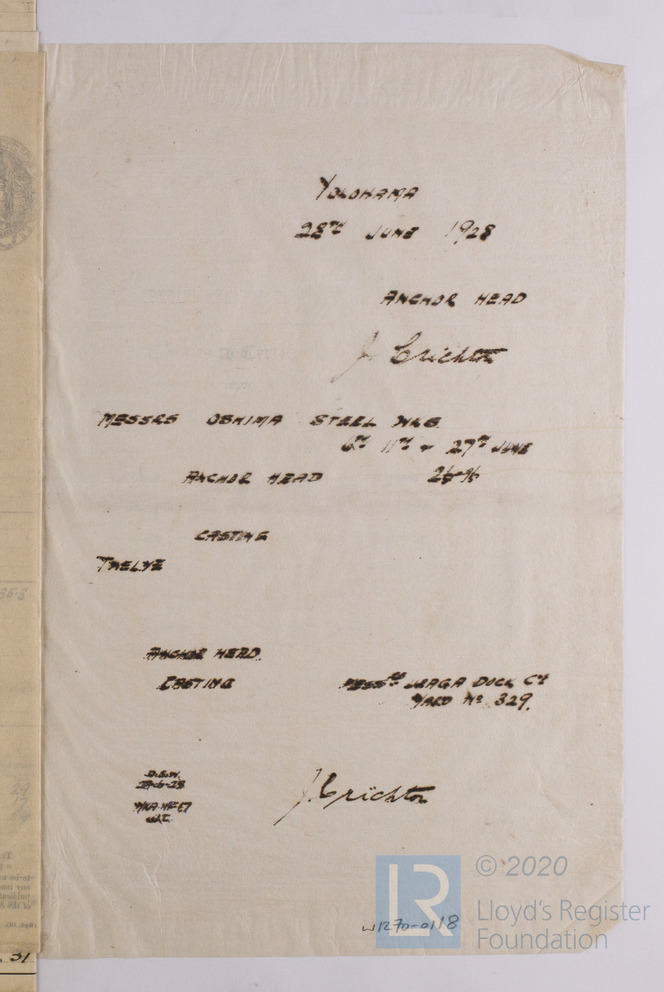 YOKOHAMA
28TH JUNE 1928
ANCHOR HEAD
J. Crichton
MESSRS OSHIMA STEEL WKS.
6TH 11TH & 27TH JUNE
ANCHOR HEAD
CASTING
TWELVE
ANCHOR HEAD.
CASTING
MESSRS URAGA DOCK CY
YARD No 329.
J. Crichton
WR70-0118
LR
© 2020
Lloyd's Register
Foundation
31